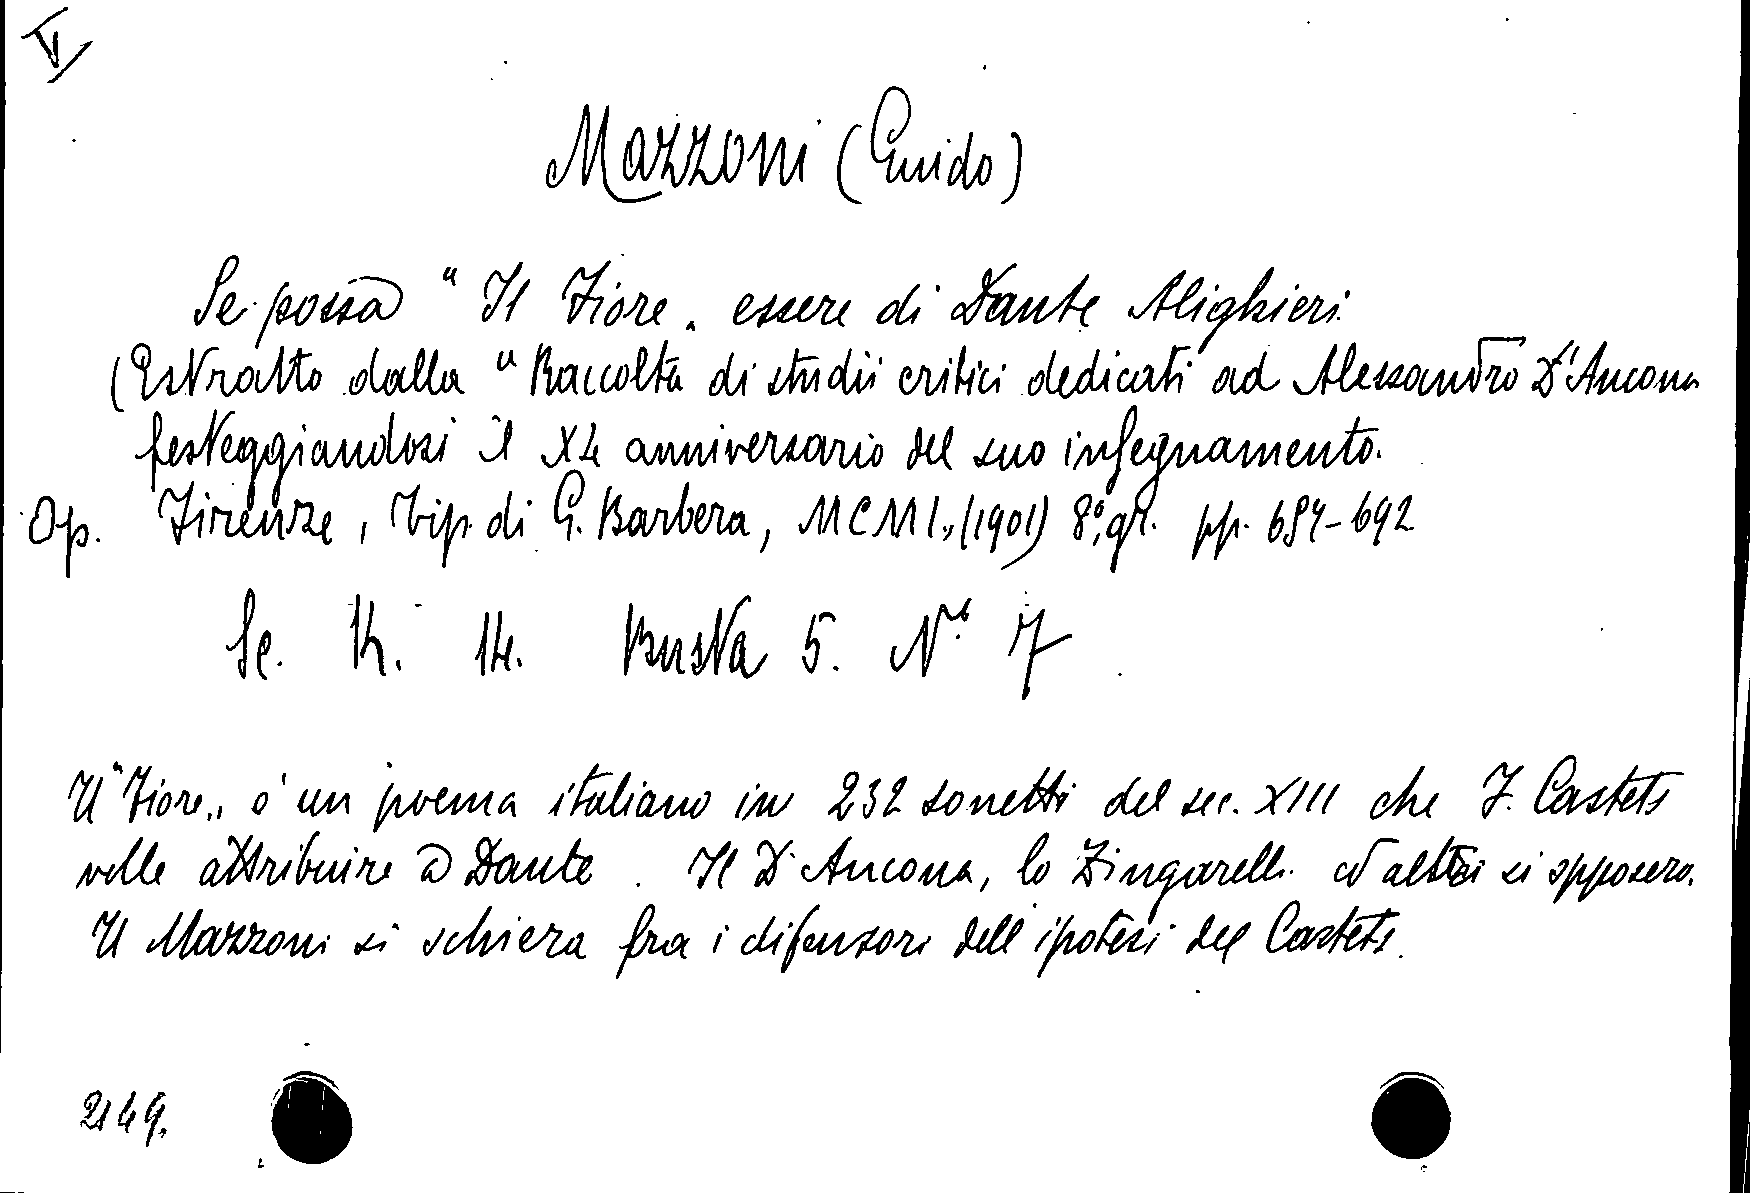 V
Mazzoni (Guido)
Se possa "Il Fiore" essere di Dante Alighieri.
(Estratto dalla "Raccolta di studii critici dedicati ad Alessandro D'Ancona
festeggiandosi il XL anniversario del suo insegnamento.
Op. Firenze, Tip. di G. Barbera, MCMI, (1901) 8°, gr. pp. 657-692
Se. K. 14. Busta 5. N.° 7
Il "Fiore" è un poema italiano in 232 sonetti del sec. XIII che F. Castets
volle attribuire a Dante. Il D'Ancona, lo Zingarelli ed altri si opposero.
Il Mazzoni si schiera fra i difensori dell'ipotesi del Castets.
2149.